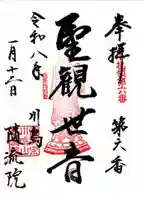 奉拝
第六番
聖観世音
令和八年
一月十二日
川島
随流院